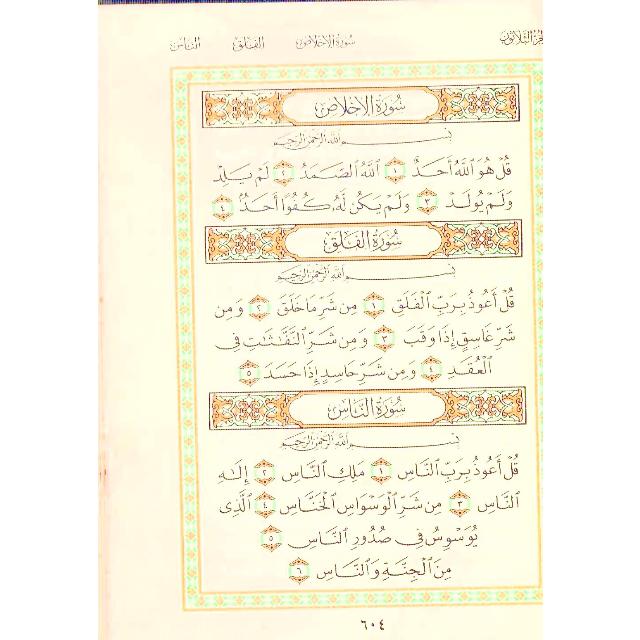 الجزء الثلاثون سورة الإخلاص الفلق الناس
سُورَةُ الإِخْلَاصِ
بِسْمِ اللَّهِ الرَّحْمَٰنِ الرَّحِيمِ
قُلْ هُوَ ٱللَّهُ أَحَدٌ ١ ٱللَّهُ ٱلصَّمَدُ ٢ لَمْ يَلِدْ
وَلَمْ يُولَدْ ٣ وَلَمْ يَكُن لَّهُۥ كُفُوًا أَحَدٌۢ ٤
سُورَةُ الفَلَقِ
بِسْمِ اللَّهِ الرَّحْمَٰنِ الرَّحِيمِ
قُلْ أَعُوذُ بِرَبِّ ٱلْفَلَقِ ١ مِن شَرِّ مَا خَلَقَ ٢ وَمِن
شَرِّ غَاسِقٍ إِذَا وَقَبَ ٣ وَمِن شَرِّ ٱلنَّفَّٰثَٰتِ فِى
ٱلْعُقَدِ ٤ وَمِن شَرِّ حَاسِدٍ إِذَا حَسَدَ ٥
سُورَةُ النَّاسِ
بِسْمِ اللَّهِ الرَّحْمَٰنِ الرَّحِيمِ
قُلْ أَعُوذُ بِرَبِّ ٱلنَّاسِ ١ مَلِكِ ٱلنَّاسِ ٢ إِلَٰهِ
ٱلنَّاسِ ٣ مِن شَرِّ ٱلْوَسْوَاسِ ٱلْخَنَّاسِ ٤ ٱلَّذِى
يُوَسْوِسُ فِى صُدُورِ ٱلنَّاسِ ٥
مِنَ ٱلْجِنَّةِ وَٱلنَّاسِ ٦
٦٠٤